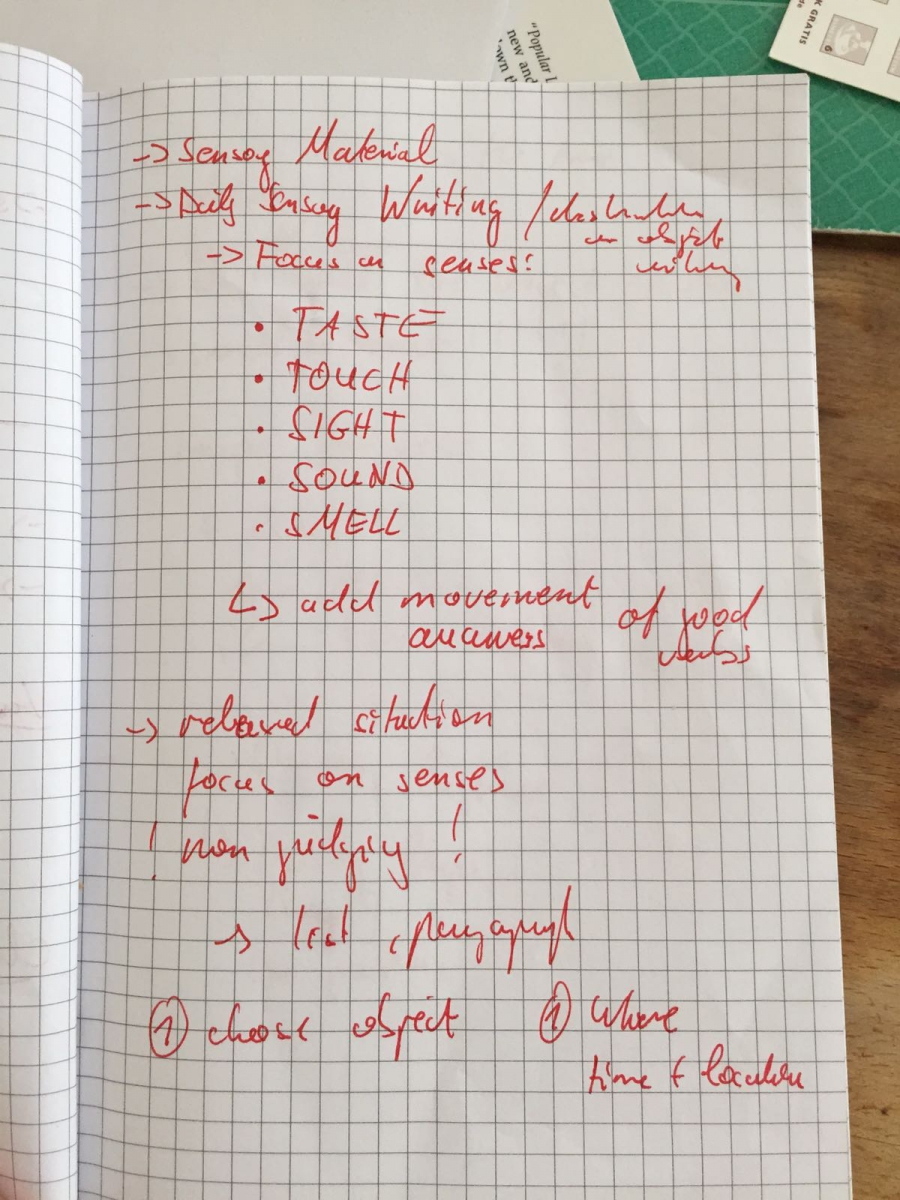 "Popular L
new and
own th
K GRATIS
6
-> Sensory Material
-> Daily Sensory Writing /
an object
writing
-> Focus on senses:
• TASTE
• TOUCH
• SIGHT
• SOUND
• SMELL
↳ add movement of good
verbs
-> relaxed situation
focus on senses
! non judging !
-> list, paragraph
① choose object ① Where
time + location